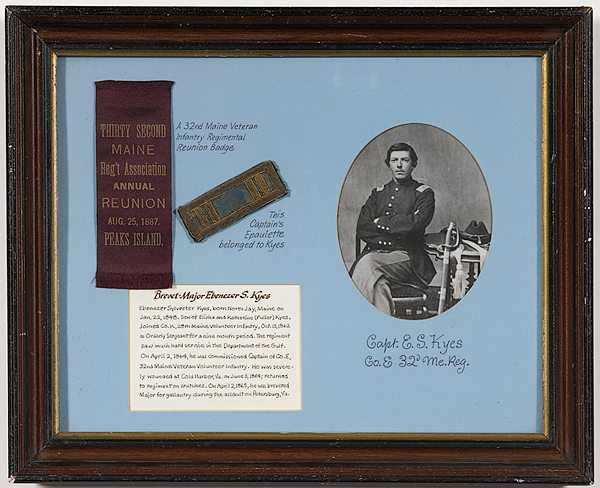 THIRTY SECOND
MAINE
Reg't Association
ANNUAL
REUNION
AUG. 25, 1887.
PEAKS ISLAND.
A 32nd Maine Veteran
Infantry Regimental
Reunion Badge
This
Captain's
Epaulette
belonged to Kyes
Brevet-Major Ebenezer S. Kyes
Ebenezer Sylvester Kyes, born North Jay, Maine on
Jan. 22, 1843. Son of Elisha and Katherine (Fuller) Kyes.
Joined Co. H, 28th Maine Volunteer Infantry, Oct. 10, 1862
as Orderly Sergeant for a nine month period. The regiment
saw much hard service in the Department of the Gulf.
On April 2, 1864, he was commissioned Captain of Co. E,
32nd Maine Veteran Volunteer Infantry. He was severe-
ly wounded at Cold Harbor, Va. on June 3, 1864; returned
to regiment on crutches. On April 2, 1865, he was breveted
Major for gallantry during the assault on Petersburg, Va.
Capt. E. S. Kyes
Co. E 32d Me. Reg.